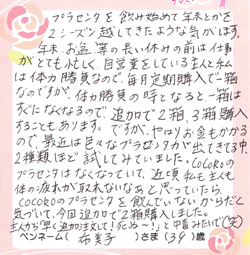 プラセンタを飲み始めて年末とかを
2シーズン越してきたような気がします。
年末、お盆等の長い休みの前は仕事
がとても忙しく自営業をしている主人と私
は体力勝負なので、毎月定期購入で一箱
なのですが、体力勝負の時となると一箱は
すぐになくなるので追加で2箱、3箱購入
することもあります。ですが、やはりお金もかかる
ので、最近は色々なプラセンタが出てきてる中、
2種類ほど試してみていました。COCOROの
プラセンタはなくなっていて、近頃私も主人も
体の疲れが取れないなあと思っていたら、
COCOROのプラセンタを飲んでいないからだと
気づいて、今回追加で2箱購入しました。
主人から「早く追加注文して!死ぬ〜!」と
ペンネーム( 布美子 )さま(39)歳